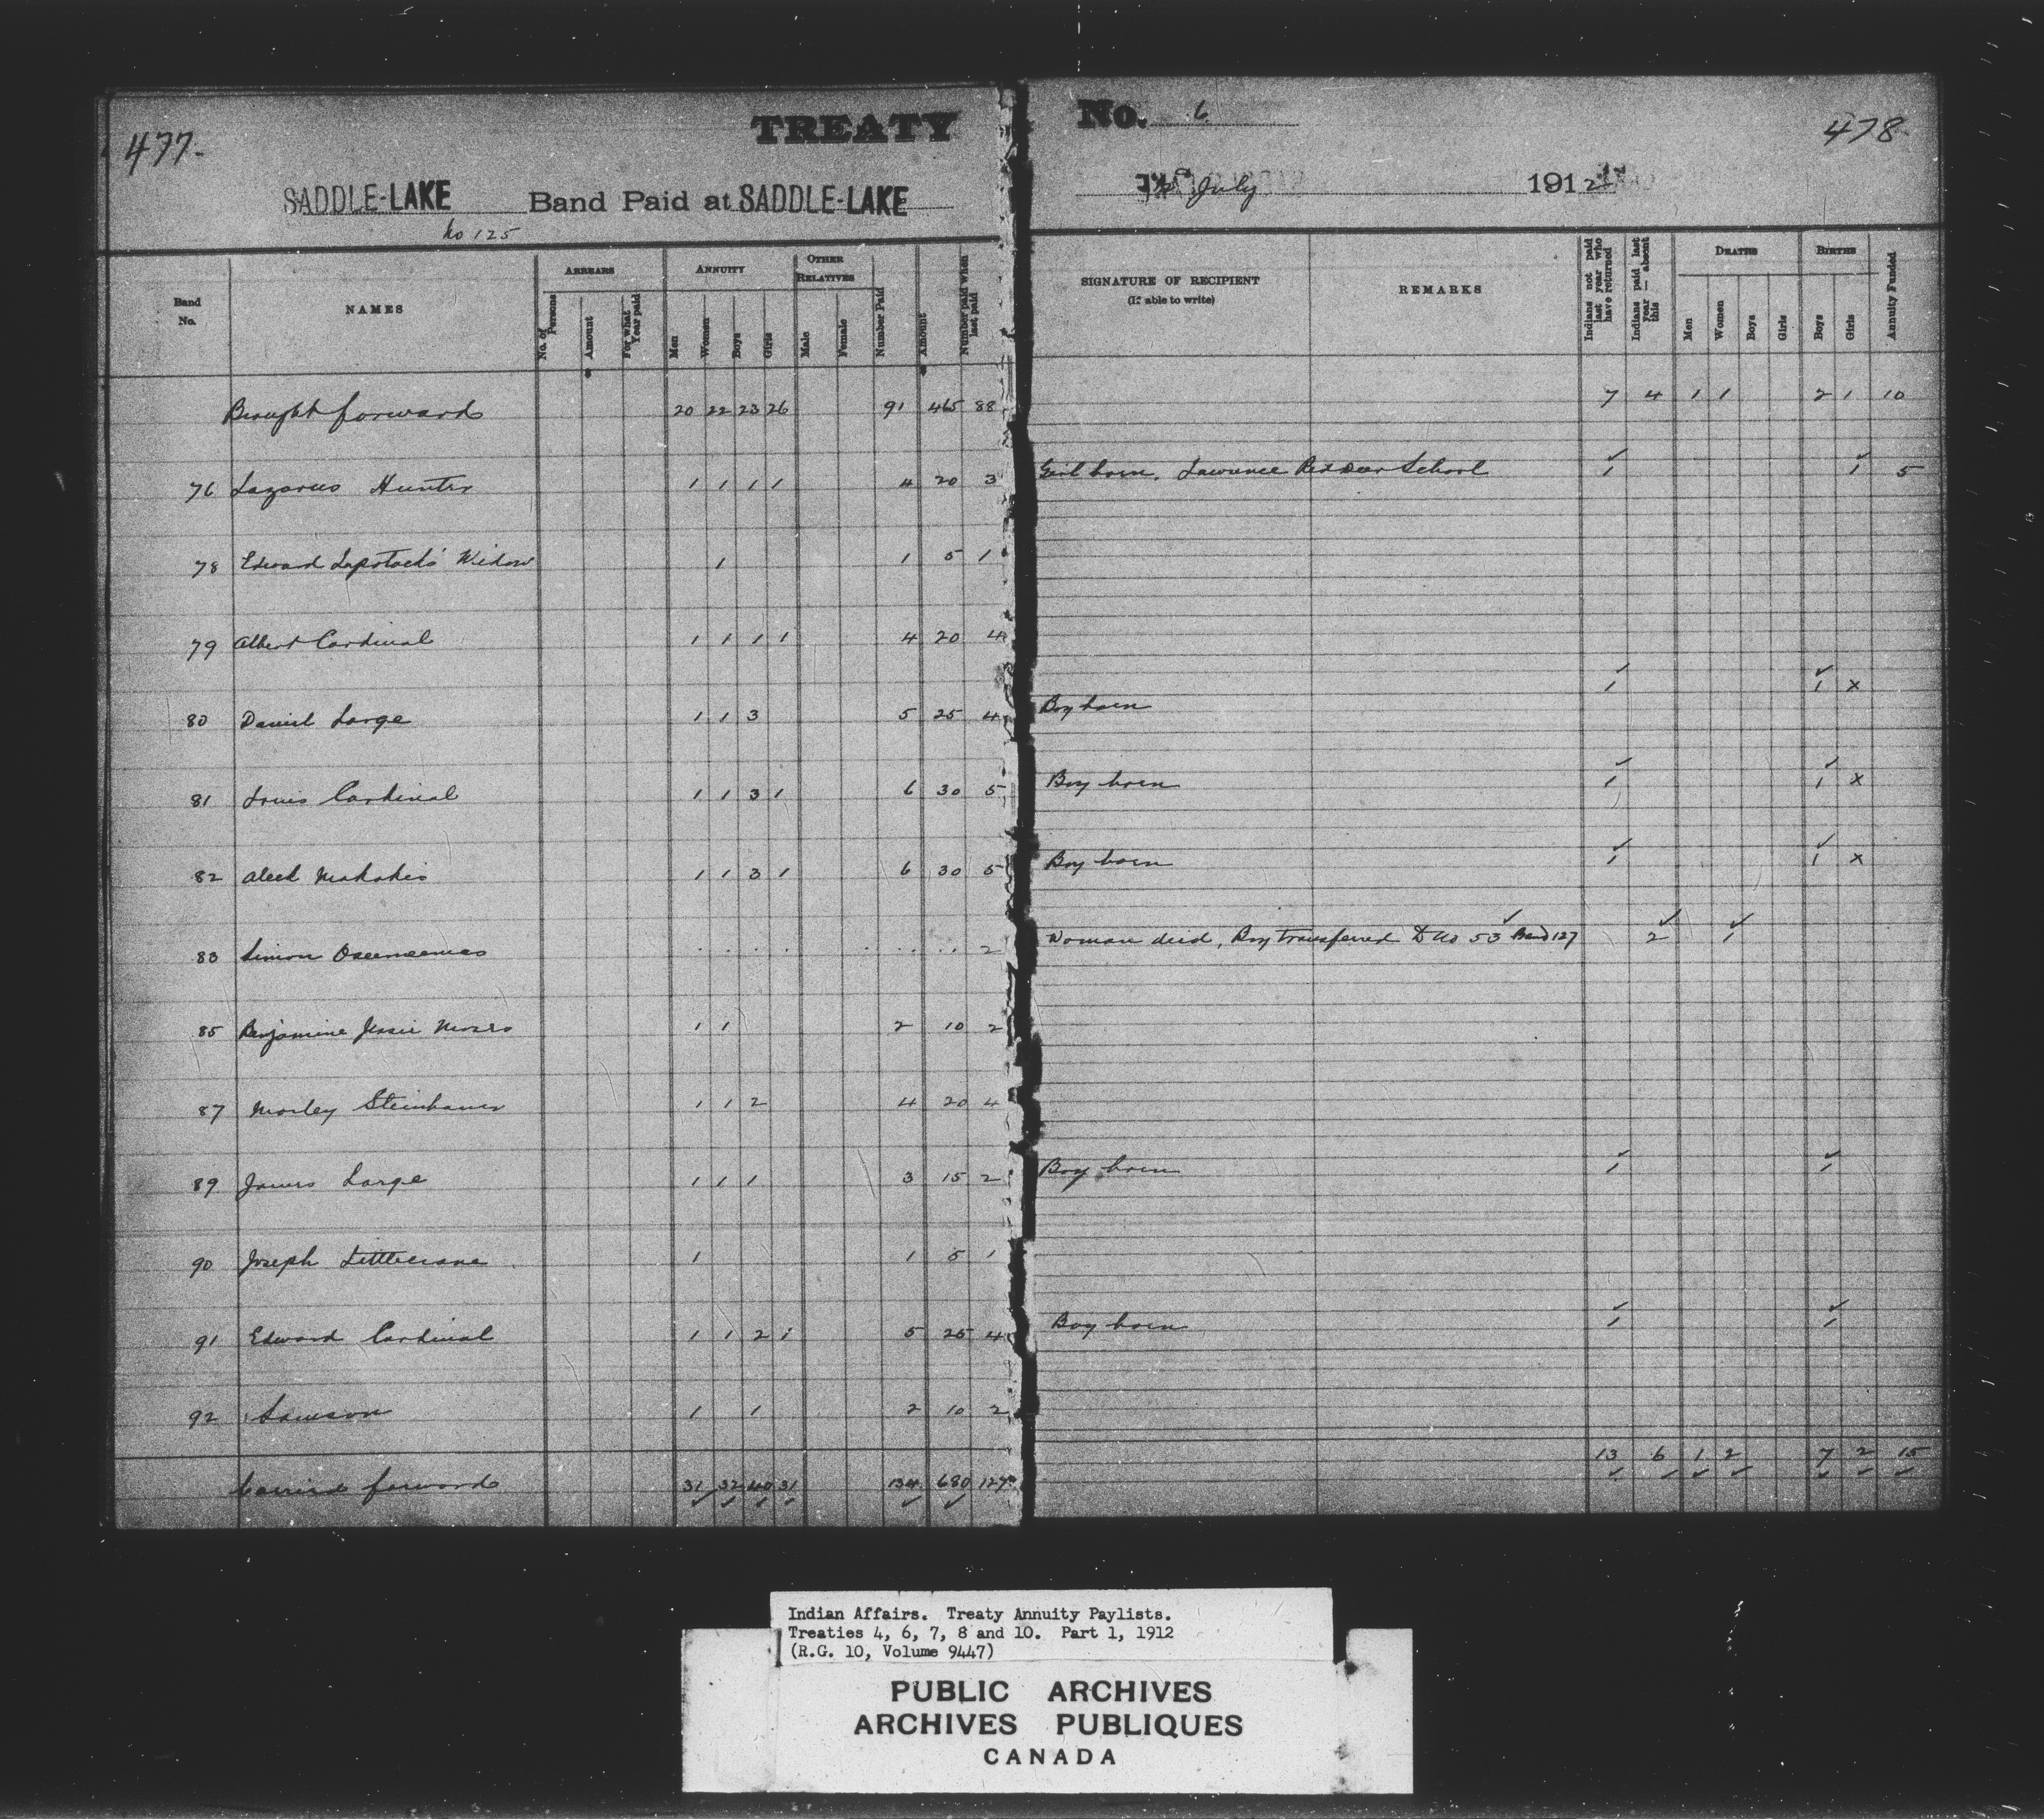 477.
TREATY
No. 6
478
SADDLE-LAKE Band Paid at SADDLE-LAKE
July 1912
No 125
Band No.
NAMES
ARREARS
No. of Persons
Amount
For what Year paid
ANNUITY
Men
Women
Boys
Girls
OTHER RELATIVES
Male
Female
Number Paid
Amount
Number paid when last paid
SIGNATURE OF RECIPIENT
(If able to write)
REMARKS
Indians not paid last year who have returned
Indians paid last year — absent this
DEATHS
Men
Women
Boys
Girls
BIRTHS
Boys
Girls
Annuity Funded
Brought forward 20 22 23 26 91 465 88 7 4 1 1 2 1 10
76 Lazarus Hunter 1 1 1 1 4 20 3 Girl born. Lawrence Red Deer School 1 1 5
78 Edward Widow 1 1 5 1
79 Albert Cardinal 1 1 1 1 4 20 4
80 Daniel Large 1 1 3 5 25 4 Boy born 1 1 x
81 Louis Cardinal 1 1 3 1 6 30 5 Boy born 1 1 x
82 Aleck Makokis 1 1 3 1 6 30 5 Boy born 1 1 x
83 Simon 2 Woman died, Boy transferred to No 53 Band 127 2 1
85 Benjamine Jessie 1 1 2 10 2
87 Morley Steinhauer 1 1 2 4 20 4
89 James Large 1 1 1 3 15 2 Boy born 1 1
90 Joseph Littlecrane 1 1 5 1
91 Edward Cardinal 1 1 2 1 5 25 4 Boy born 1 1
92 Samson 1 1 2 10 2
Carried forward 31 32 40 31 134 680 127 13 6 1 2 7 2 15
Indian Affairs. Treaty Annuity Paylists.
Treaties 4, 6, 7, 8 and 10. Part 1, 1912
(R.G. 10, Volume 9447)
PUBLIC ARCHIVES
ARCHIVES PUBLIQUES
CANADA